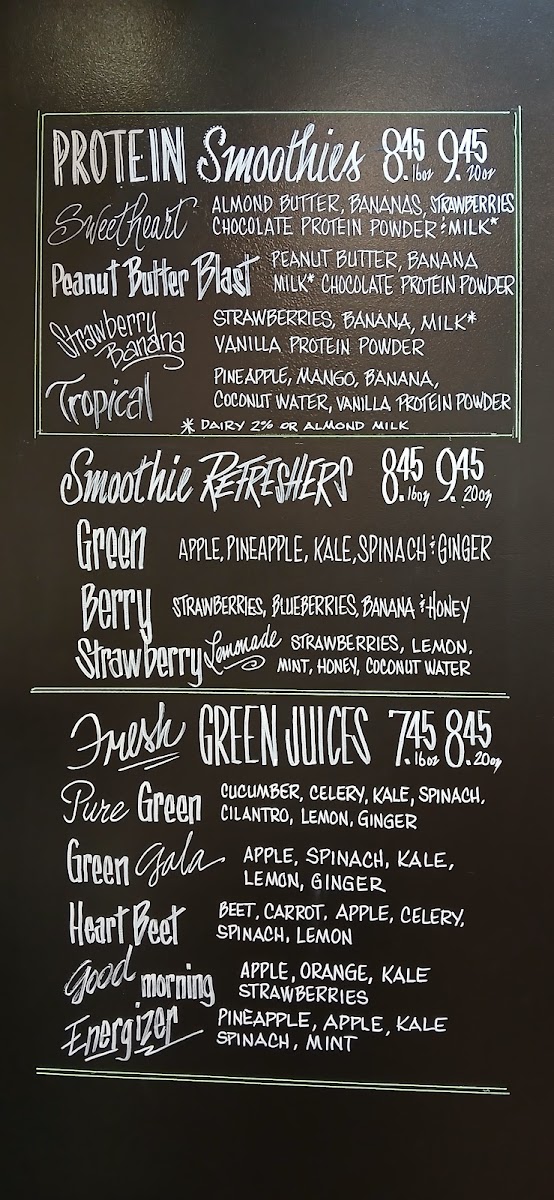 PROTEIN Smoothies 8.45 16oz 9.45 20oz
Sweetheart ALMOND BUTTER, BANANAS, STRAWBERRIES
CHOCOLATE PROTEIN POWDER & MILK*
Peanut Butter Blast PEANUT BUTTER, BANANA
MILK* CHOCOLATE PROTEIN POWDER
Strawberry Banana STRAWBERRIES, BANANA, MILK*
VANILLA PROTEIN POWDER
Tropical PINEAPPLE, MANGO, BANANA,
COCONUT WATER, VANILLA PROTEIN POWDER
* DAIRY 2% OR ALMOND MILK
Smoothie REFRESHERS 8.45 16oz 9.45 20oz
Green APPLE, PINEAPPLE, KALE, SPINACH & GINGER
Berry STRAWBERRIES, BLUEBERRIES, BANANA & HONEY
Strawberry Lemonade STRAWBERRIES, LEMON,
MINT, HONEY, COCONUT WATER
Fresh GREEN JUICES 7.45 16oz 8.45 20oz
Pure Green CUCUMBER, CELERY, KALE, SPINACH,
CILANTRO, LEMON, GINGER
Green Gala APPLE, SPINACH, KALE,
LEMON, GINGER
Heart Beet BEET, CARROT, APPLE, CELERY,
SPINACH, LEMON
Good morning APPLE, ORANGE, KALE
STRAWBERRIES
Energizer PINEAPPLE, APPLE, KALE
SPINACH, MINT